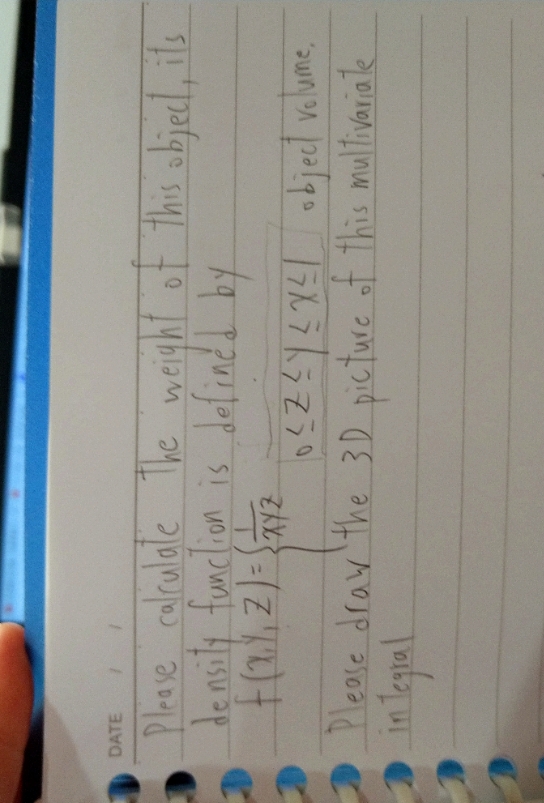 DATE / /
Please calculate the weight of this object, its
density function is defined by
f(x,y,z)={1/xyz
0≤z≤y≤x≤1 object volume.
Please draw the 3D picture of this multivariate
integral